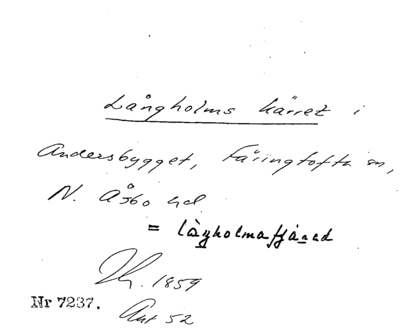 Långholms kärret i
Andersbygget, Färingtofta sn,
N. Åsbo hd
= lågholmafjæred
Nr 7237.
1859
Avt 52